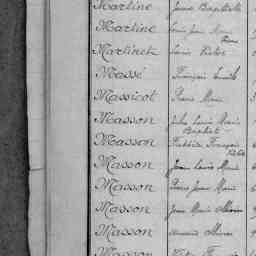 Martine Jean Baptiste
Martine Louis Jean Marie
Pierre
Martinet Louis Victor
Massé François
Massicot Pierre Marie
Masson Jules Louis Marie
Baptiste
Masson François
Victor
Masson Jean Louis Marie
Masson Pierre Jean Marie
Masson Jean Marie
Masson
Masson Victor François